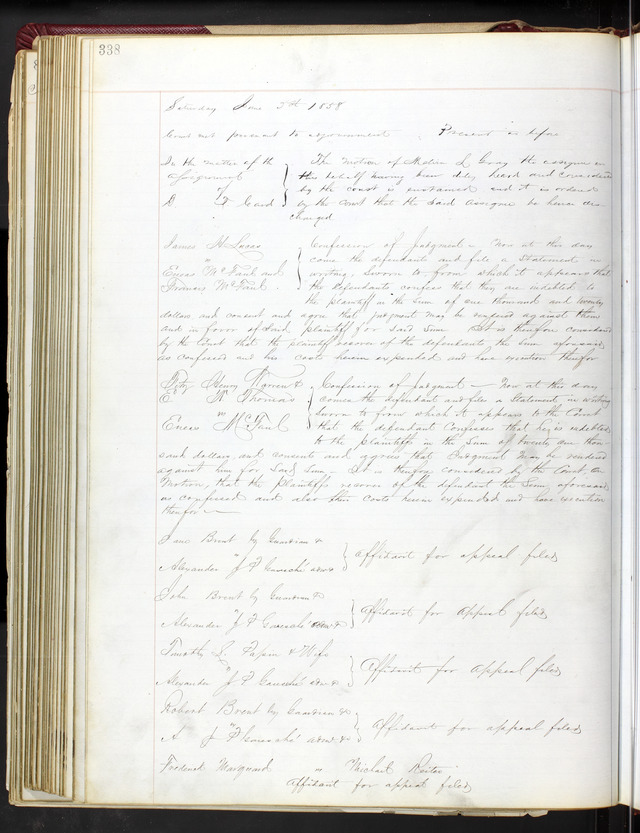 338
Saturday June 5th 1858
Court met pursuant to adjournment Present as before
In the matter of the } The motion of L Gray the assignee in
Assignment } this behalf having been duly heard and considered
of } by the court is sustained and it is ordered
D & T Card } by the Court that the said assignee be hence dis-
charged
James H Lucas } Confession of Judgment - Now at this day
vs } come the defendants and file a Statement in
Eneas McFaul and } writing, Sworn to from which it appears that
Francis McFaul } the defendants confess that they are indebted to
the plaintiff in the Sum of one thousand and twenty
dollars and consent and agree that judgment may be rendered against them
and in favor of said plaintiff for said sum It is therefore considered
by the Court that the plaintiff recover of the defendants the Sum aforesaid
as confessed and his costs herein expended and have execution therefor
Fitz Henry Warren & } Confession of Judgment - Now at this day
E W Thomas } comes the defendant and files a Statement in writing
vs } Sworn to from which it appears to the Court
Eneas McFaul } that the defendant Confesses that he is indebted
to the plaintiffs in the Sum of twenty one thou-
sand dollars, and consents and agrees that Judgment may be rendered
against him for Said Sum - It is therefore considered by the Court on
Motion, that the Plaintiffs recover of the defendant the Sum aforesaid
as confessed and also their costs herein expended and have execution
therefor
Jane Brent by Guardian &
vs } Affidavit for appeal filed
Alexander J P Garesché admr &
John Brent by Guardian &
vs } Affidavit for appeal filed
Alexander J P Garesché admr &
Timothy L Papin & Wife
vs } Affidavit for appeal filed
Alexander J P Garesché adm &
Robert Brent by Guardian &
vs } Affidavit for appeal filed
A J P Garesché admr &
Frederick Marquard vs Michael Reiter
Affidavit for appeal filed